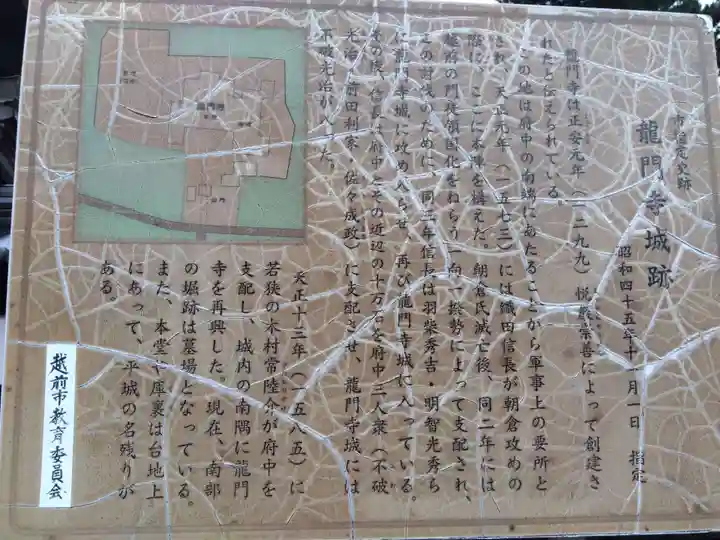 市指定史跡
龍門寺城跡
昭和四十五年十一月一日 指定
龍門寺は正安元年(一二九九)悦巌崇善によって創建さ
れたと伝えられている。
この地は府中の南端にあたることから軍事上の要所と
され、天正元年(一五七三)には織田信長が朝倉攻めの
際に、ここに本陣を構えた。朝倉氏滅亡後、同二年には
越前の門徒領国化をねらう一向一揆勢によって支配され、
この討伐のために、同三年信長は羽柴秀吉・明智光秀ら
に龍門寺城に攻め入らせ、再び龍門寺城に入っている。
その後、信長は府中とその近辺の十万石を府中三人衆(不破
光治・前田利家・佐々成政)に支配させ、龍門寺城には
不破光治が入った。
天正十三年(一五八五)に
若狭の木村常陸介が府中を
支配し、城内の南隅に龍門
寺を再興した。現在、南部
の堀跡は墓場となっている。
また、本堂や庫裏は台地上
にあって、平城の名残りが
ある。
越前市教育委員会